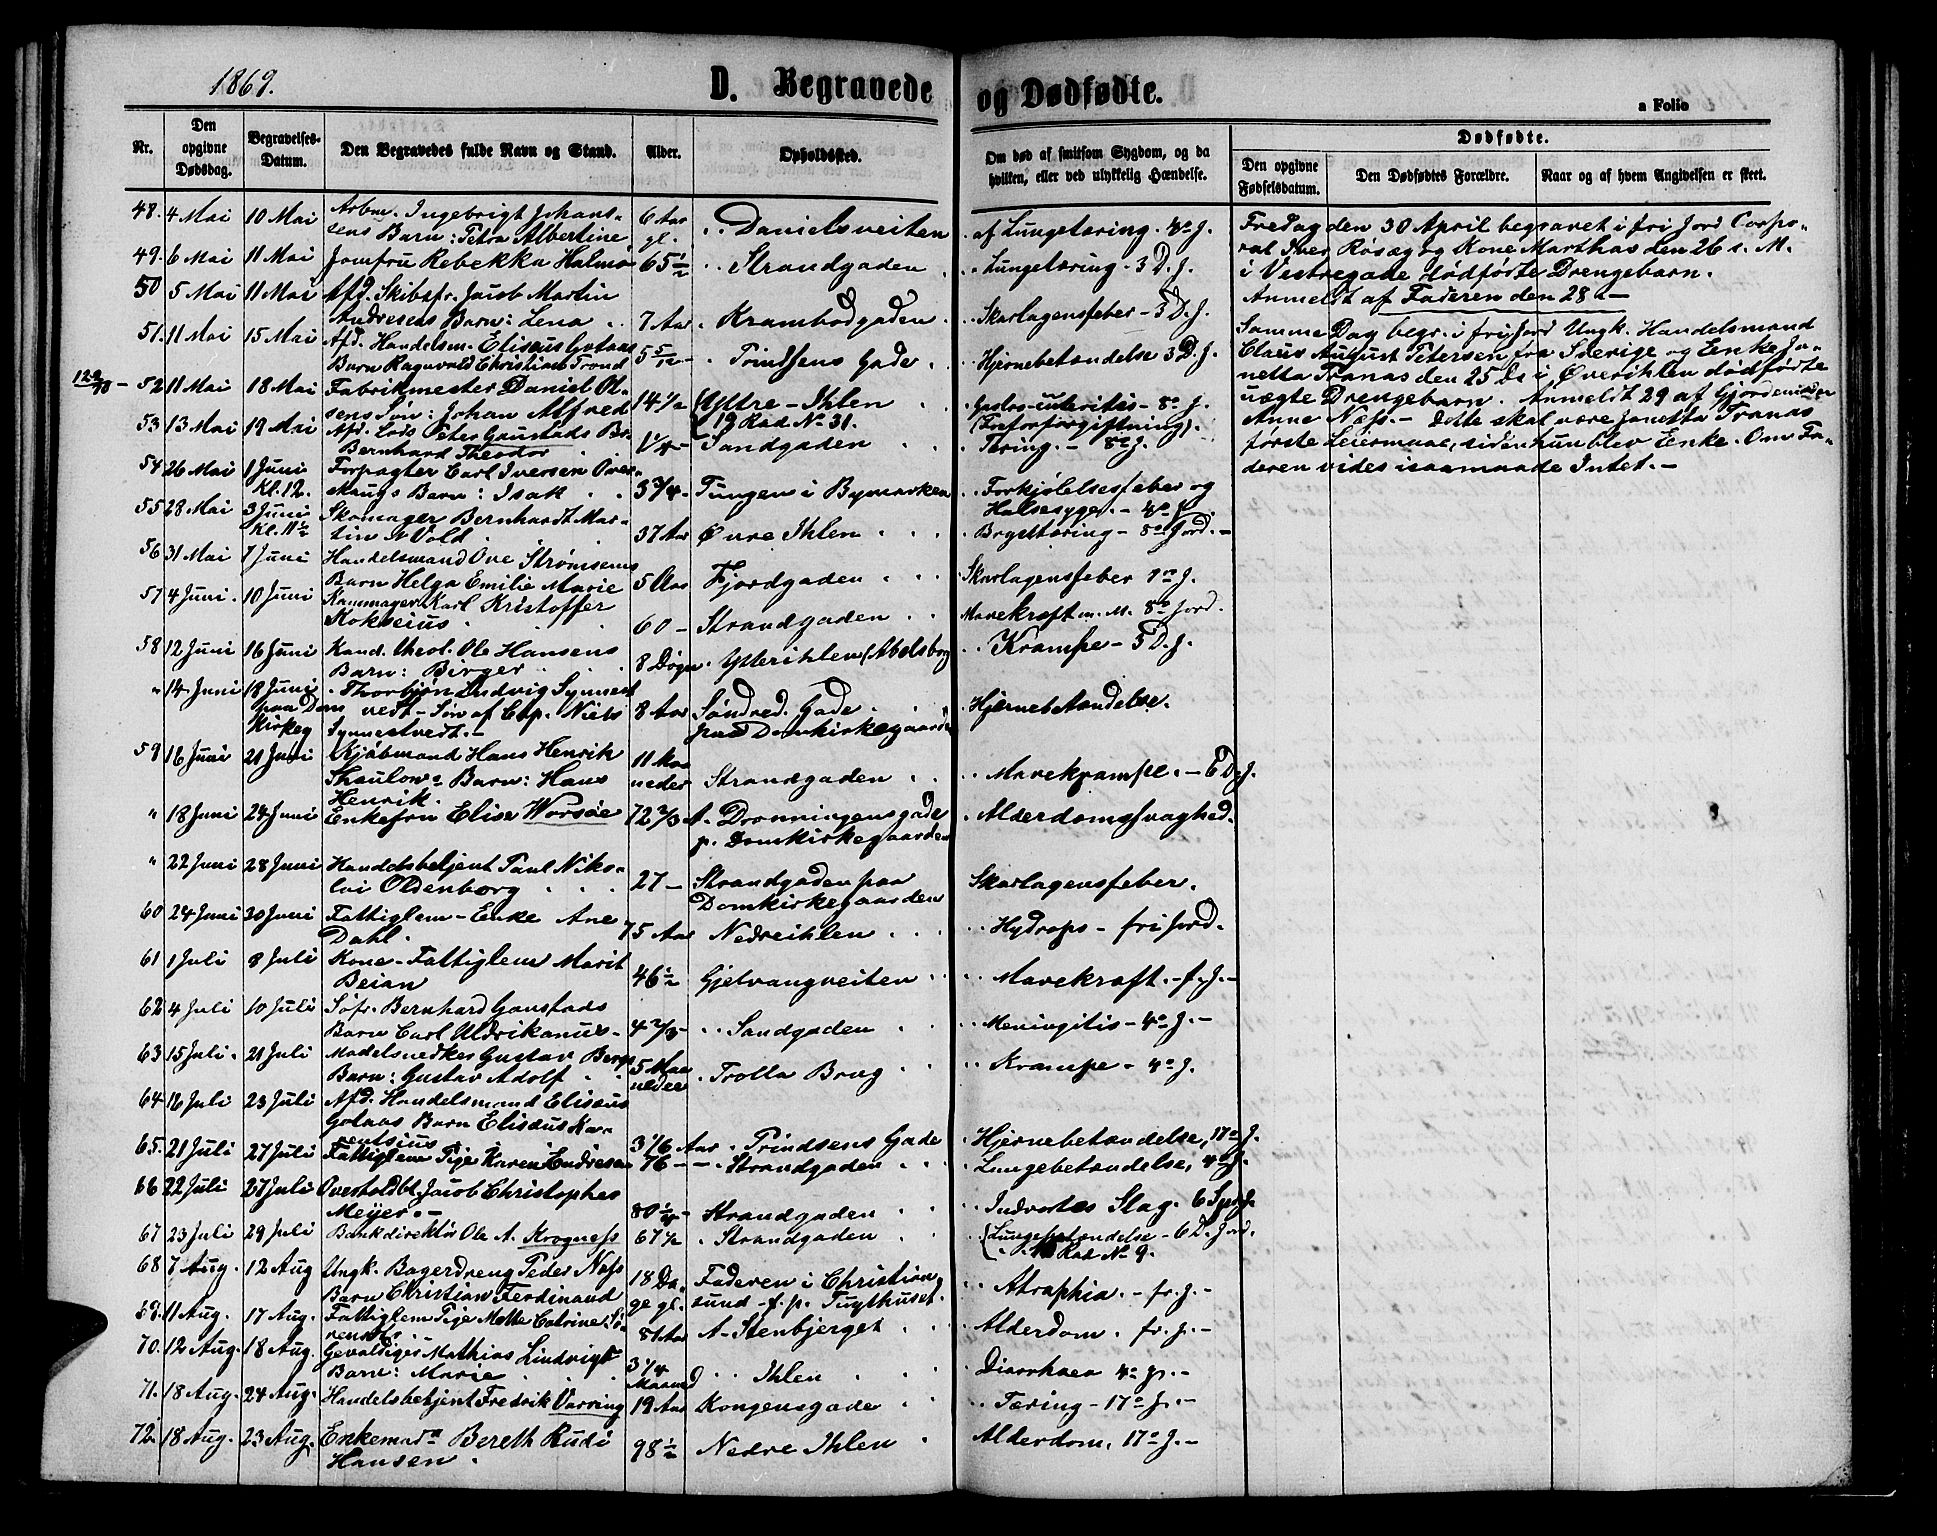 1869.
D. Begravede og Dødfødte.
a Folio
Nr.
Den opgivne Dødsdag.
Begravelses-Datum.
Den Begravedes fulde Navn og Stand.
Alder.
Opholdssted.
Om død af smitsom Sygdom, og da hvilken, eller ved ulykkelig Hændelse.
Dødfødte.
Den opgivne Fødselsdatum.
Den Dødfødtes Forældre.
Naar og af hvem Angivelsen er skeet.
48. 4 Mai 10 Mai Arbm. Ingebrigt Johans- 6 Aar Danielsveiten af Lungetæring. 4º J.
sens Barn: Petra Albertine gl.
49. 6 Mai 11 Mai Jomfru Rebekka Halmo 65 1/2 Strandgaden Lungetæring - 3 D. J.
50 5 Mai 11 Mai Afd. Skibsfr. Jacob Martin
Andresens Barn: Lena 7 Aar Krambodgaden Skarlagensfeber - 3 D. J.
51. 11 Mai 15 Mai Afd. Handelsm. Elisæus Gotaas
Barn Ragnvald Christian Trond 5 5/12 - Prindsens Gade Hjernebetændelse 3 D. J.
52 11 Mai 18 Mai Fabrikmester Daniel Ol-
sens Søn: Johan Alfred 14 1/2 Ystre-Ihlen Gastro-enteritis - 8º J.
53 13 Mai 19 Mai Afd. Lods Peter Gaustads Bn (19 Rad Nº 31.
Bernhard Theodor 1 1/4 - Sandgaden Tæring. - 8º J.
54 26 Mai 1 Juni Forpagter Carl Iversen Over-
Kl. 12. Maugs Barn: Isak 3 3/4 - Tungen i Bymarken Forkjølelsesfeber og
Halsesyge. - 4º J.
55 28 Mai 3 Juni Skomager Bernhardt Mar-
Kl. 11 1/2 tin Vold 37 Aar Øvre Ihlen Brysttæring - 8º Jord. -
56 31 Mai 7 Juni Handelsmand Ove Strømsems
Barn Helga Emilie Marie 5 Aar Fjordgaden Skarlagensfeber 1º J.
57 4 Juni. 10 Juni Kammager Karl Kristoffer
Kokseius. 60 - Strandgaden Mavekræft m. M. 8º Jord.
58 12 Juni 16 Juni Kand. theol. Ole Hansens
Barn: Birger 8 Døgn Ytterihlen (Abelsborg Krampe - 3 D. J.
" 14 Juni 18 Juni Thorbjørn Ludvig Synnest
paa Dom vedt - Søn af Cap. Niels 8 Aar Søndred. Gade Hjernebetændelse.
Kirkeg Synnestvedt. - paa Domkirkegaarden
59 16 Juni 21 Juni Kjøbmand Hans Henrik
Thaulows Barn: Hans 11 Maa
Henrik. neder Strandgaden Mavekrampe. - E D. J.
" 18 Juni 24 Juni Enkefru Elise Worsøe 72 2/3 A. Dronningensgade Alderdomssvaghed.
p. Domkirkegaarden
" 22 Juni 28 Juni Handelsbetjent Paul Niko-
lai Oldenborg 27 - Strandgaden paa Skarlagensfeber.
Domkirkegaarden
60 24 Juni 30 Juni Fattiglem - Enke Ane
Dahl. 75 Aar Nedreihlen Hydrops - fri Jord.
61 1 Juli 8 Juli Kone - Fattiglem Marit
Beian 46 1/2 Gjelvangveiten Mavekræft. - f. J. -
62 4 Juli 10 Juli Søfr. Bernhard Gaustads
Barn Carl Uldrikanus - 4 2/3 - Sandgaden Meningitis - 4º J. -
63 15 Juli. 21 Juli Modelsnedker Gustav Bergs
Barn: Gustav Adolf 5 Maa neder Trolla Brug Krampe - 4º J.
64 16 Juli 23 Juli Afd. Handelsmand Elisæus
Gotaas Barn Elisæus Lau-
rentsius 3 1/6 Aar Prindsens Gade Hjernebetændelse, 17º J.
65. 21 Juli 27 Juli Fattiglem Pige Karen Endresen 76 - - Strandgaden Lungebetændelse, 4º J.
66 22 Juli 27 Juli Overtoldbt. Jacob Christopher
Meyer. - 80 1/4 Strandgaden Indvortes Slag.
67 23 Juli 29 Juli Bankdirektør Ole A. Krogness 67 1/2 Strandgaden (Lungebetændelse - 6 D. Jord.
Rad Nº 9.
68 7 Aug. 12 Aug Ungk. Bagerdreng Peder Næss
Barn Christian Ferdinand 18 Da- ge gl. Faderen i Christian- sund - f. p. Tugthuset. Atrophia. - fr. J. -
69. 11 Aug. 17 Aug. Fattiglem Pige Mette Catrine Sø-
rensdt. 81 Aar A - Stenbjerget Alderdom. fr. J. -
70. 12 Aug. 18 Aug. Gevaldiger Mathias Lindvigs
Barn: Marie 3 1/4 Maaned Ihlen Diarrhaea 4º J. -
71. 18 Aug. 24 Aug. Handelsbetjent Fredrik Varring 19 Aar Kongensgade Tæring - 17º J. -
72. 18 Aug. 23 Aug. Enkemadm Bereth Rudi
Hansen. 98 1/2 Nedre Ihlen Alderdom, 17º J. -
Fredag den 30 April begravet i fri Jord Corpo-
ral Iver Røsæg og Kone Marthas den 26 s. M.
i Vestregade dødfødte Drengebarn.
Anmeldt af Faderen den 28 -
Samme Dag begr. i fri Jord Ungk. Handelsmand
Claus August Petersen fra Sverige og Enke Ja-
netta Tranas den 25 Ds i Øvreihlen dødfødte
uægte Drengebarn. Anmeldt 29 af Gjordemoder
Anne Næss. - Dette skal være Janetta Tranas
første Leiermaal, siden hun blev Enke. Om Fa-
deren vides isaamaade Intet. -